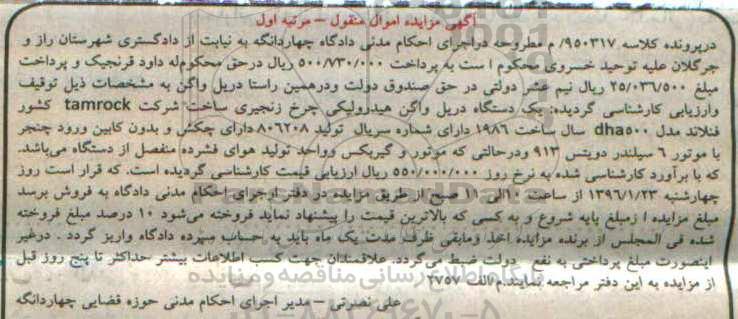 آگهی مزایده اموال منقول – مرتبه اول
درپرونده کلاسه ۹۵۰۳۱۷/ م مطروحه دراجرای احکام مدنی دادگاه چهاردانگه به نیابت از دادگستری شهرستان راز و
جرگلان علیه توحید خسروی محکوم ا ست به پرداخت ۵۰۰/۷۳۰/۰۰۰ ریال درحق محکوم‌له داود قرنجیک و پرداخت
مبلغ ۲۵/۰۳۶/۵۰۰ ریال نیم عشر دولتی در حق صندوق دولت ودرهمین راستا دریل واگن به مشخصات ذیل توقیف
وارزیابی کارشناسی گردیده: یک دستگاه دریل واگن هیدرولیکی چرخ زنجیری ساخت شرکت tamrock کشور
فنلاند مدل dha۵۰۰ سال ساخت ۱۹۸۶ دارای شماره سریال تولید ۸۰۶۲۰۸ دارای چکش و بدون کابین ورود چنجر
با موتور ۶ سیلندر دویتس ۹۱۳ ودرحالتی که موتور و گیربکس وواحد تولید هوای فشرده منفصل از دستگاه می‌باشد.
که با برآورد کارشناسی شده به نرخ روز ۵۵۰/۰۰۰/۰۰۰ ریال ارزیابی قیمت کارشناسی گردیده است. که قرار است روز
چهارشنبه ۱۳۹۶/۱/۲۳ از ساعت ۱۰الی ۱۱ صبح از طریق مزایده در دفتر اجرای احکام مدنی دادگاه به فروش برسد
مبلغ مزایده ا زمبلغ پایه شروع و به کسی که بالاترین قیمت را پیشنهاد نماید فروخته می‌شود ۱۰ درصد مبلغ فروخته
شده فی المجلس از برنده مزایده اخذ ومابقی ظرف مدت یک ماه باید به حساب سپرده دادگاه واریز گردد . درغیر
اینصورت مبلغ پرداختی به نفع دولت ضبط می‌گردد. علاقمندان جهت کسب اطلاعات بیشتر حداکثر تا پنج روز قبل
از مزایده به این دفتر مراجعه نمایند.م/الف ۲۷۵۷
علی نصرتی – مدیر اجرای احکام مدنی حوزه قضایی چهاردانگه
پایگاه اطلاع رسانی مناقصه و مزایده